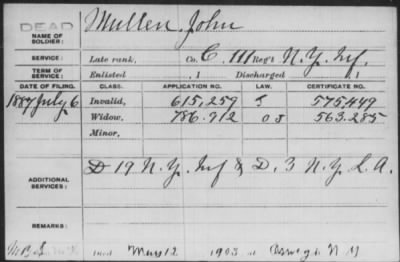 DEAD
NAME OF SOLDIER: Mullen, John
SERVICE: Late rank, Co. C, 111 Reg't N.Y. Inf.
TERM OF SERVICE: Enlisted , 1 Discharged , 1
DATE OF FILING. CLASS. APPLICATION NO. LAW. CERTIFICATE NO.
1887 July 6 Invalid, 615,259 575,449
Widow, 786.912 563.285
Minor,
ADDITIONAL SERVICES: D 19 N.Y. Inf & D. 3 N.Y. L.A.
REMARKS:
died May 12 1903 at Oswego N.Y